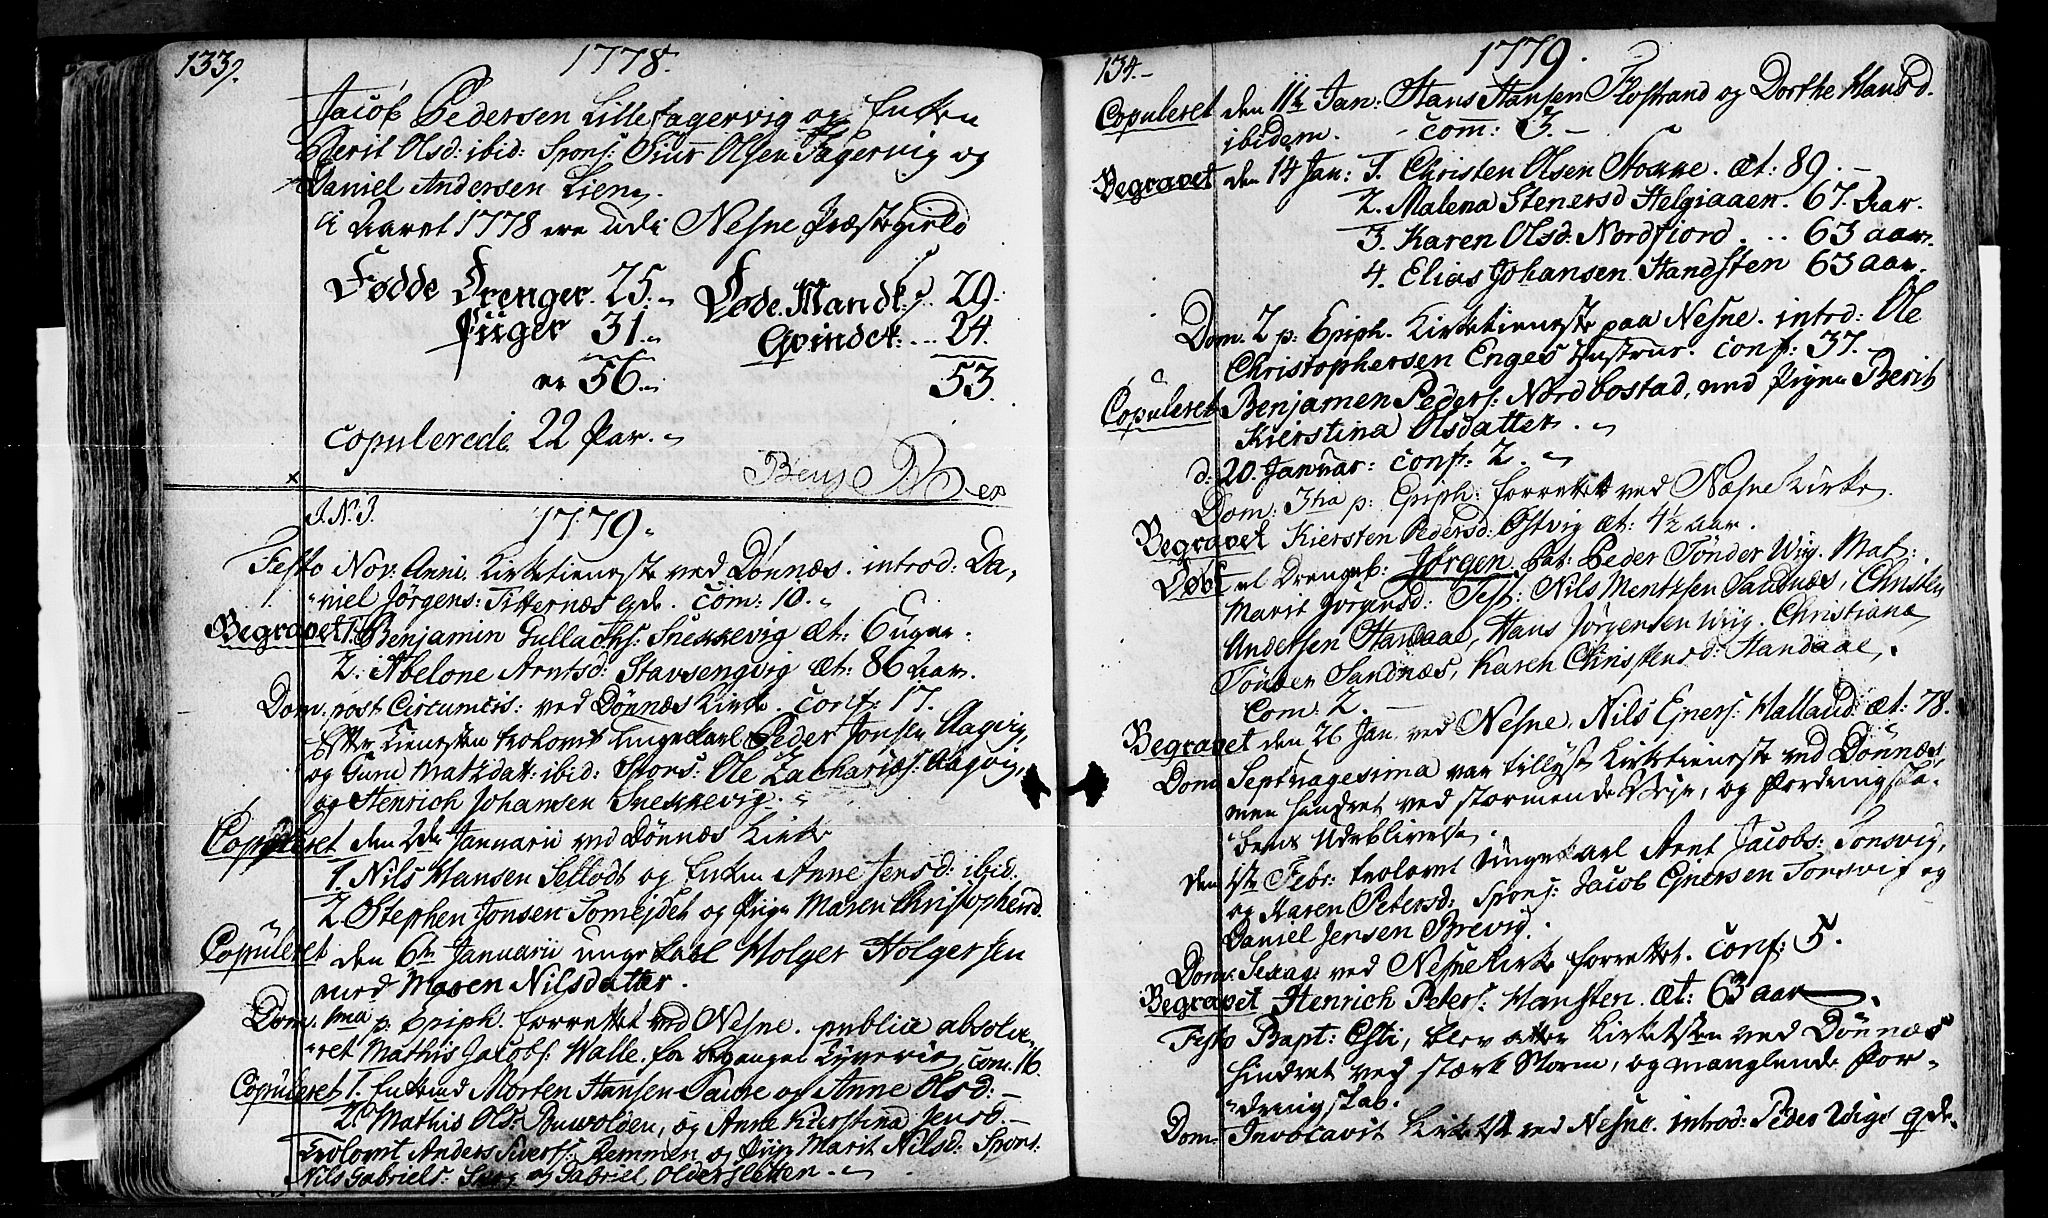 133.
1778.
Jacob Pedersen Lillefagervig og Enken
Berit Olsd: ibid: Spons: Siur Olsen Fagervig og
Daniel Andersen Lien.
I Aaret 1778 ere udi Nesne Præstegield
Fødde Drenger 25. Døde Mandk: 29.
Piiger 31. Qvindek: ... 24.
er 56. 53.
copulerede 22 Par.
J. N. J.
1779.
Festo Nov: Anni. Kirketieneste ved Dønnæs. introd: Da-
niel Jørgens: Titternæs qde. Com: 10.
Begravet 1. Benjamin Gullachs: Snekkevig æt: 6 uger.
2. Abelone Arntsd: Stavsengvig æt: 86 Aar.
Dom. post Circumcis: ved Dønnæs Kirke. Conf: 17.
Efter tienesten trolovet ungekarl Peder Jonsen Aagvig,
og Gunil Matzdatt: ibid: Spons: Ole Zacharies: Aagvig,
og Henrich Johansen Snekkevig.
Copuleret den 2den Januarii ved Dønnæs Kirke
1. Nils Hansen Selfodt og Enken Anne Jensd: ibid:
2. Stephen Jonsen Tomejdet og Pigen Maren Christophersd.
Copuleret den 6te Januarii ungekarl Holger Holgersen
med Maren Nilsdatter.
Dom. 1ma p: Epiph. forrettet ved Nesne. publice absolve-
ret Mathis Jacobs: Walle. for begangen Tyverie. com: 16.
Copuleret 1. Enkemd Morten Hansen og Anne Olsd:
2. Mathis Ols: og Anne Kierstina Jensd.
Trolovet Anders Siverss: Remmen og Piige Marit Nilsd: Spons:
Nils Gabriels: og Gabriel Oldersletten.
134.
1779.
Copuleret den 11te Jan: Hans Hansen Flostrand og Dorthe Hansd.
ibidem. com: 3.
Begravet den 14 Jan: 1. Christen Olsen æt: 89.
2. Malena Stenersd Helgiaaen. 67. Aar.
3. Karen Olsd: Nordfiord ... 63 aar.
4. Elias Johansen Handsten 63 aar.
Dom. 2 p: Epiph. Kirketieneste paa Nesne. introd: Ole
Christophersen Enges Hustrue. conf: 37.
Copuleret Benjamen Peders: Nordbostad, med Pigen Berit
Kierstina Olsdatter.
d. 20. Januar: conf: 2.
Dom: 3tia p: Epiph: forrettet ved Næsne Kirke.
Begravet Kiersten Pedersd: Østvig æt: 4½ aar.
Døbt et Drengeb: Jørgen. Pat: Peder Tønder Wiig. Mat:
Marit Jørgensd: Test: Nils Mentzsen Sandnæs, Christen
Andersen Handaae, Hans Jørgensen Wiig. Christiana
Tønder Sandnæs, Karen Christensd: Handaae.
Com: 2.
Begravet den 26 Jan ved Nesne, Nils Ejners: Halland æt: 78.
Dom Septuagesima var tillyst Kirketieneste ved Dønnæs,
men hindret ved stormende Vejr, og Fordringska-
bens Udeblivelse.
den 1ste Febr: trolovet Ungekarl Arnt Jacobs: Tonsvig,
og Maren Petersd: Spons: Jacob Ejnersen Tonsvig og
Daniel Jensen Brevig.
Dom. Sexag: ved Nesne Kirke forrettet. Conf: 5.
Begravet Henrich Peters: Hansten. æt: 63 aar.
Festo Bapt: Xsti, blev atter Kirketsten ved Dønnæs
hindret ved stærk Storm, og manglende For-
dringskab.
Dom: Invocavit Kirketst ved Nesne. introd: Peder Wiigs qde.